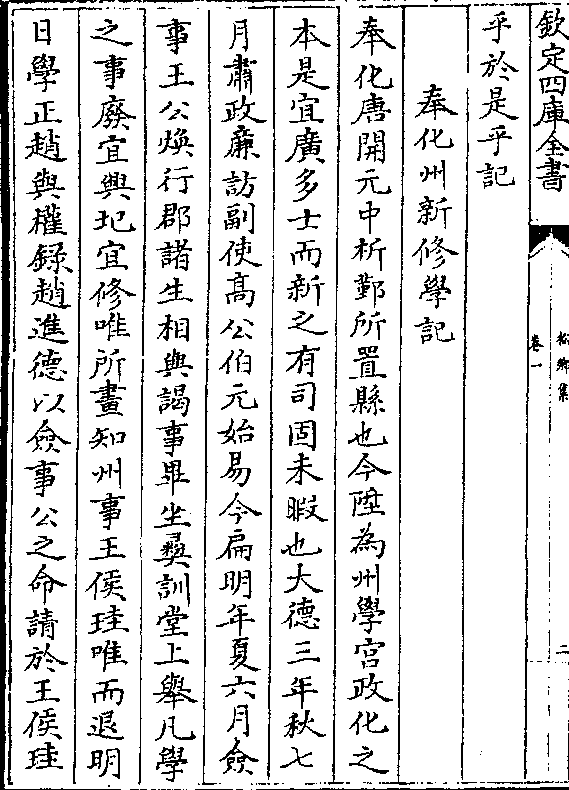 欽定四庫全書
松鄉集
卷一
二
乎於是乎記
奉化州新修學記
奉化唐開元中析鄞所置縣也今陞為州學宫政化之
本是宜廣多士而新之有司固未暇也大德三年秋七
月肅政廉訪副使髙公伯元始易今扁明年夏六月僉
事王公煥行郡諸生相與謁事畢坐彞訓堂上舉凡學
之事廢宜興圮宜修唯所畫知州事王侯珪唯而退明
日學正趙與權録趙進德以僉事公之命請於王侯珪